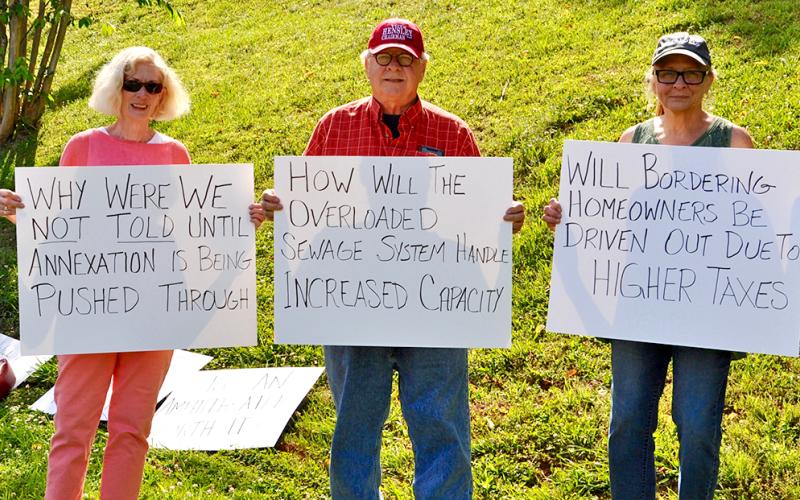 HENSLEY
CHAIRMAN
WHY WERE WE
NOT TOLD UNTIL
ANNEXATION IS BEING
PUSHED THROUGH
HOW WILL THE
OVERLOADED
SEWAGE SYSTEM HANDLE
INCREASED CAPACITY
WILL BORDERING
HOMEOWNERS BE
DRIVEN OUT DUE TO
HIGHER TAXES
IS AN
WITH